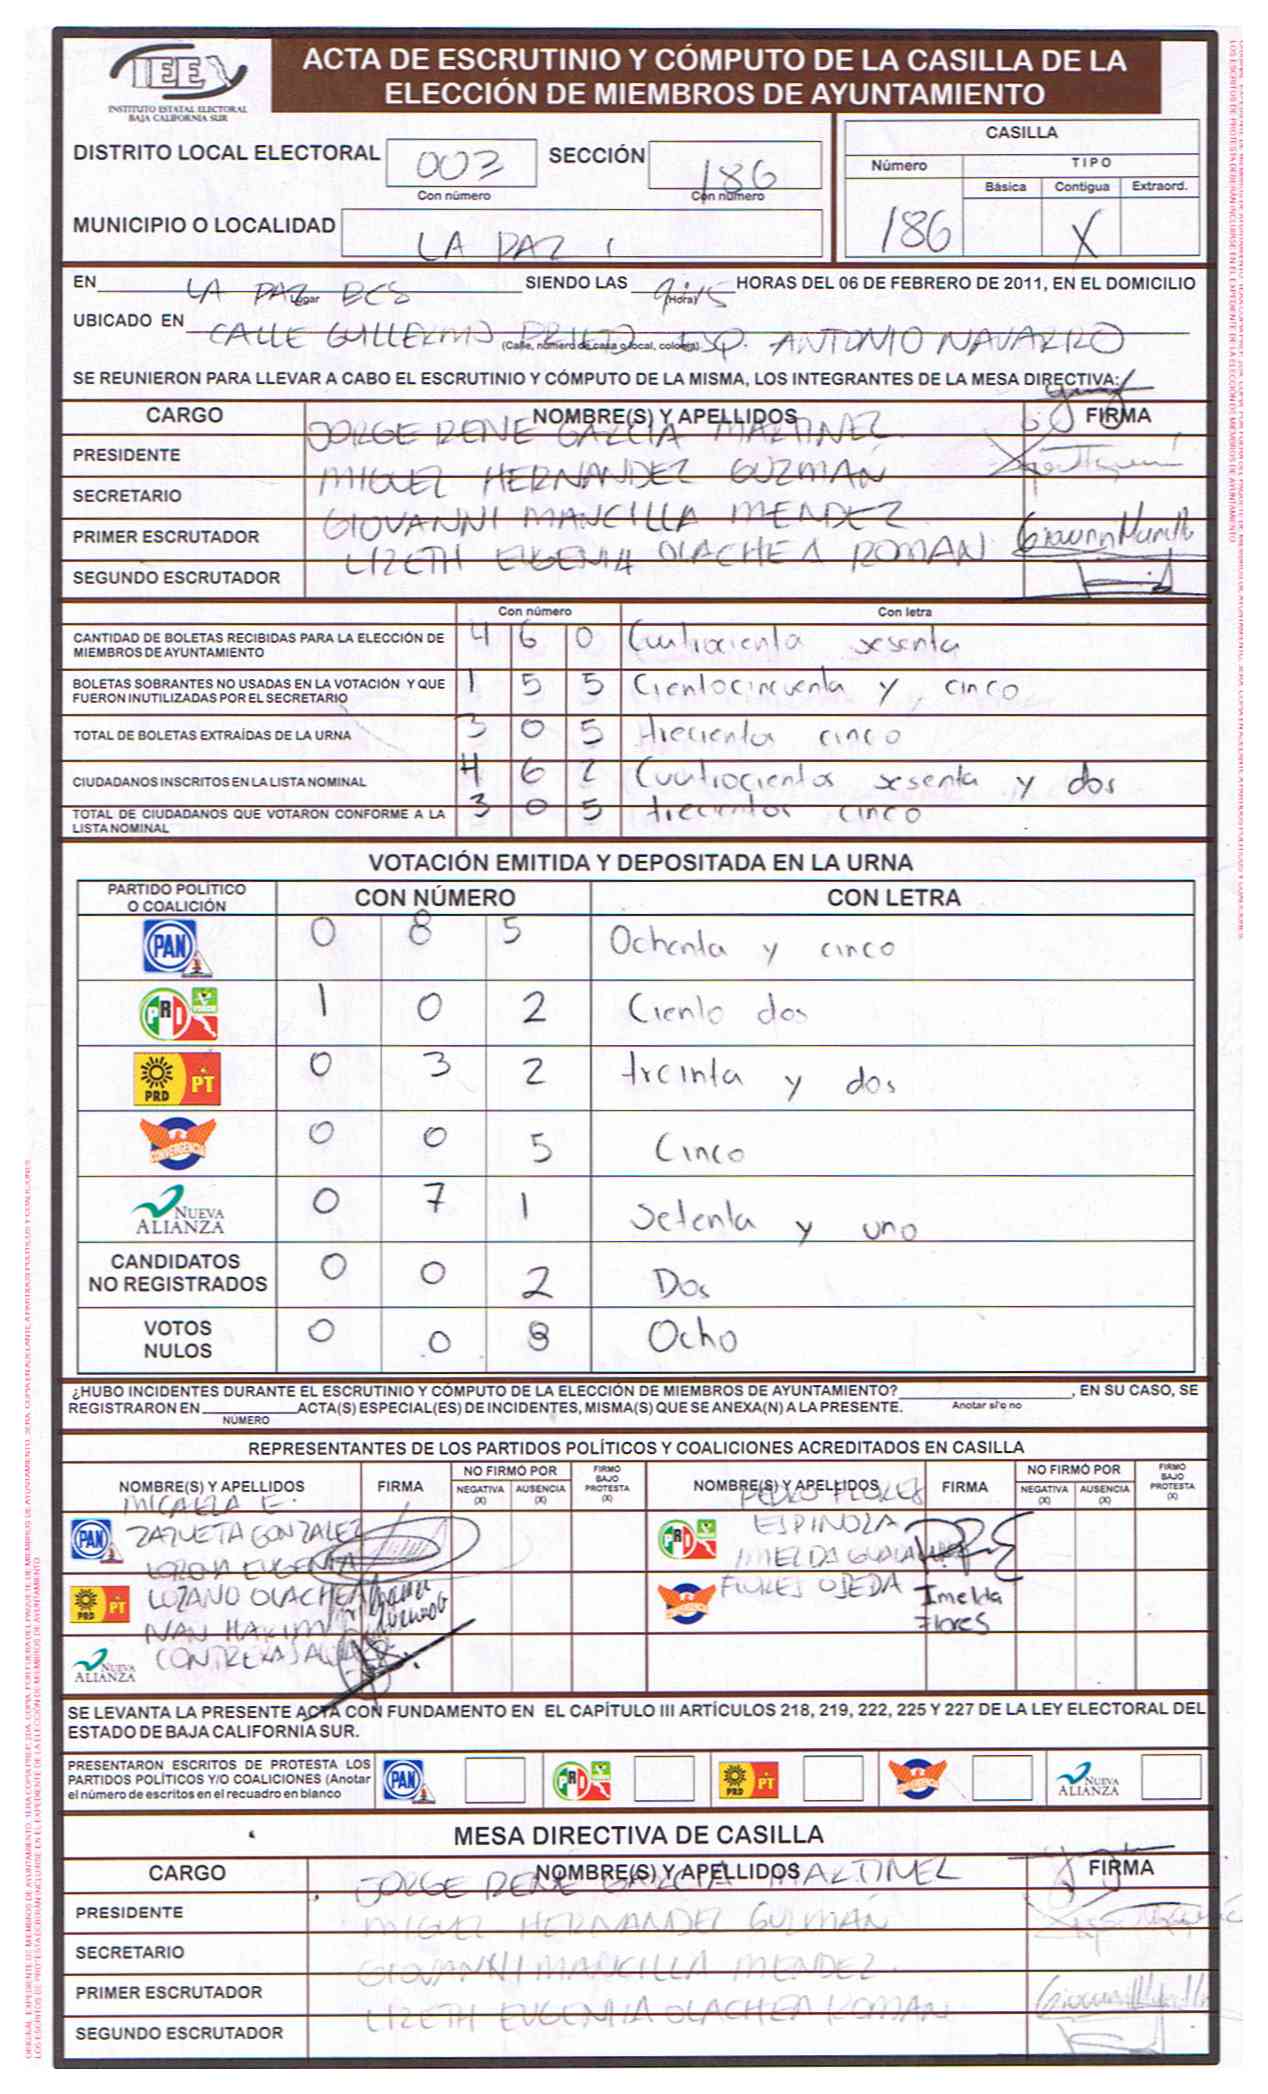 IEE
INSTITUTO ESTATAL ELECTORAL
BAJA CALIFORNIA SUR
ACTA DE ESCRUTINIO Y CÓMPUTO DE LA CASILLA DE LA
ELECCIÓN DE MIEMBROS DE AYUNTAMIENTO
DISTRITO LOCAL ELECTORAL 003 SECCIÓN 186
Con número Con número
MUNICIPIO O LOCALIDAD LA PAZ
CASILLA
Número TIPO
Básica Contigua Extraord.
186 X
EN LA PAZ BCS SIENDO LAS 9:45 HORAS DEL 06 DE FEBRERO DE 2011, EN EL DOMICILIO
Lugar (Hora)
UBICADO EN CALLE GUILLERMO PRIETO ESQ. ANTONIO NAVARRO
(Calle, número de casa o local, colonia)
SE REUNIERON PARA LLEVAR A CABO EL ESCRUTINIO Y CÓMPUTO DE LA MISMA, LOS INTEGRANTES DE LA MESA DIRECTIVA:
CARGO NOMBRE(S) Y APELLIDOS FIRMA
PRESIDENTE JORGE RENE GARCIA MARTINEZ
SECRETARIO MIGUEL HERNANDEZ GUZMÁN
PRIMER ESCRUTADOR GIOVANNI MANCILLA MENDEZ
SEGUNDO ESCRUTADOR LIZETH EUGENIA OLACHEA ROMAN
Con número Con letra
CANTIDAD DE BOLETAS RECIBIDAS PARA LA ELECCIÓN DE
MIEMBROS DE AYUNTAMIENTO 4 6 0 Cuatrocienta sesenta
BOLETAS SOBRANTES NO USADAS EN LA VOTACIÓN Y QUE
FUERON INUTILIZADAS POR EL SECRETARIO 1 5 5 Cientocincuenta y cinco
TOTAL DE BOLETAS EXTRAÍDAS DE LA URNA 3 0 5 trecientos cinco
CIUDADANOS INSCRITOS EN LA LISTA NOMINAL 4 6 2 Cuatrocientos sesenta y dos
TOTAL DE CIUDADANOS QUE VOTARON CONFORME A LA
LISTA NOMINAL 3 0 5 trecientos cinco
VOTACIÓN EMITIDA Y DEPOSITADA EN LA URNA
PARTIDO POLÍTICO
O COALICIÓN CON NÚMERO CON LETRA
PAN 0 8 5 Ochenta y cinco
PRI 1 0 2 Ciento dos
PRD PT 0 3 2 treinta y dos
CONVERGENCIA 0 0 5 Cinco
NUEVA ALIANZA 0 7 1 Setenta y uno
CANDIDATOS
NO REGISTRADOS 0 0 2 Dos
VOTOS
NULOS 0 0 8 Ocho
¿HUBO INCIDENTES DURANTE EL ESCRUTINIO Y CÓMPUTO DE LA ELECCIÓN DE MIEMBROS DE AYUNTAMIENTO? , EN SU CASO, SE
Anotar sí o no
REGISTRARON EN ACTA(S) ESPECIAL(ES) DE INCIDENTES, MISMA(S) QUE SE ANEXA(N) A LA PRESENTE.
NÚMERO
REPRESENTANTES DE LOS PARTIDOS POLÍTICOS Y COALICIONES ACREDITADOS EN CASILLA
NOMBRE(S) Y APELLIDOS FIRMA NO FIRMÓ POR NEGATIVA (X) AUSENCIA (X) FIRMÓ BAJO PROTESTA (X) NOMBRE(S) Y APELLIDOS FIRMA NO FIRMÓ POR NEGATIVA (X) AUSENCIA (X) FIRMÓ BAJO PROTESTA (X)
PAN MICAELA E. ZAZUETA GONZALEZ PRI PEDRO FLORES ESPINOZA
PRD PT LORENA EUGENIA LOZANO OLACHEA CONVERGENCIA IMELDA GUADALUPE FLORES OJEDA Imelda Flores
NUEVA ALIANZA IVAN HAKIM CONTRERAS
SE LEVANTA LA PRESENTE ACTA CON FUNDAMENTO EN EL CAPÍTULO III ARTÍCULOS 218, 219, 222, 225 Y 227 DE LA LEY ELECTORAL DEL
ESTADO DE BAJA CALIFORNIA SUR.
PRESENTARON ESCRITOS DE PROTESTA LOS
PARTIDOS POLÍTICOS Y/O COALICIONES (Anotar
el número de escritos en el recuadro en blanco
PAN PRI PRD PT CONVERGENCIA NUEVA ALIANZA
MESA DIRECTIVA DE CASILLA
CARGO NOMBRE(S) Y APELLIDOS FIRMA
PRESIDENTE JORGE RENE GARCIA MARTINEZ
SECRETARIO MIGUEL HERNANDEZ GUZMÁN
PRIMER ESCRUTADOR GIOVANNI MANCILLA MENDEZ
SEGUNDO ESCRUTADOR LIZETH EUGENIA OLACHEA ROMAN